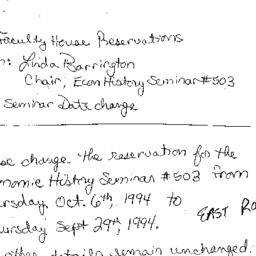 Faculty House Reservations
m: Linda Barrington
Chair, Econ History Seminar #503
Seminar Date change
se change the reservation for the
nomic History Seminar #503 from
ursday, Oct. 6th, 1994 to
EAST RO
ursday Sept 29th, 1994.
other details remain unchanged.